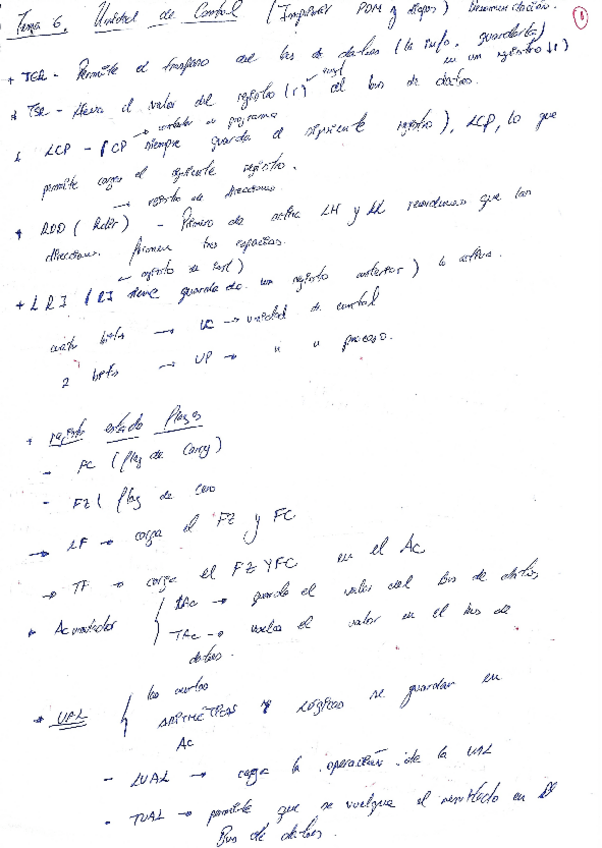 Tema 6. Unidad de Control (Imprimir PDM y diapos) Documentación.
+ TER - Permite el traspaso del bus de datos (la info. guardarla)
en un registro (r)
+ TSR - lleva el valor del registro (r) al bus de datos.
→ contador de programa
+ LCP - (CP siempre guarda el siguiente registro), LCP, lo que
permite cargar el siguiente registro.
→ registro de direcciones
+ RDD (Rdir) - Primero da activa LH y LL
direcciones. tres espacios.
← registro de inst)
+ LRI (RI tiene guarda de un registro anterior) lo activa.
cuatro bytes → UC → unidad de control
2 bytes → UP → " " proceso.
+ registro estado flags
- FC (flag de Carry)
- FZ ( flag de cero
→ LF → carga el FZ y FC
→ TF → carga el FZ Y FC en el Ac
+ Acumulador { LAc → guarda el valor del Bus de datos
TAc → vuelca el valor en el bus de
datos.
+ UAL { las
ARITMÉTICAS y Lógicas se guardar en
AC
- LUAL → carga la operación de la UAL
- TUAL → permite que se vuelque el resultado en el
Bus de datos.